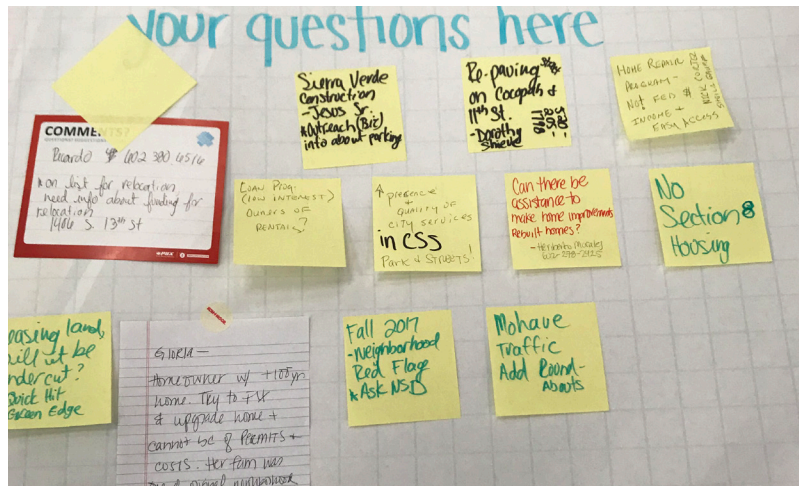 your questions here
Sierra Verde
Construction
- Jesus Sr.
*Outreach (Biz)
info about parking
Re-paving
on Cocopah &
11th St.
- Dorothy
Shieve
HOME REPAIR
PROGRAM -
NOT FED $
INCOME +
EASY ACCESS
COMMENTS?
Ricardo
* on list for relocation
need info about funding for
relocation
1406 S. 13th St
PHX
LOAN PROG.
(LOW INTEREST)
OWNERS OF
RENTALS?
↑ presence
+ QUALITY OF
CITY SERVICES
in CSS
PARK & STREETS!
Can there be
assistance to
make home improvements
Rebuilt homes?
- Heriberto Morales
No
Section 8
Housing
easing land,
will it be
ndercut?
Quick Hit
Green Edge
GLORIA -
Homeowner w/ +100yr
home. Try to fix
& upgrade home +
cannot bc of PERMITS +
COSTS. Her fam was
Fall 2017
- Neighborhood
Red Flag
*Ask NSD
Mohave
Traffic
Add Round-
Abouts